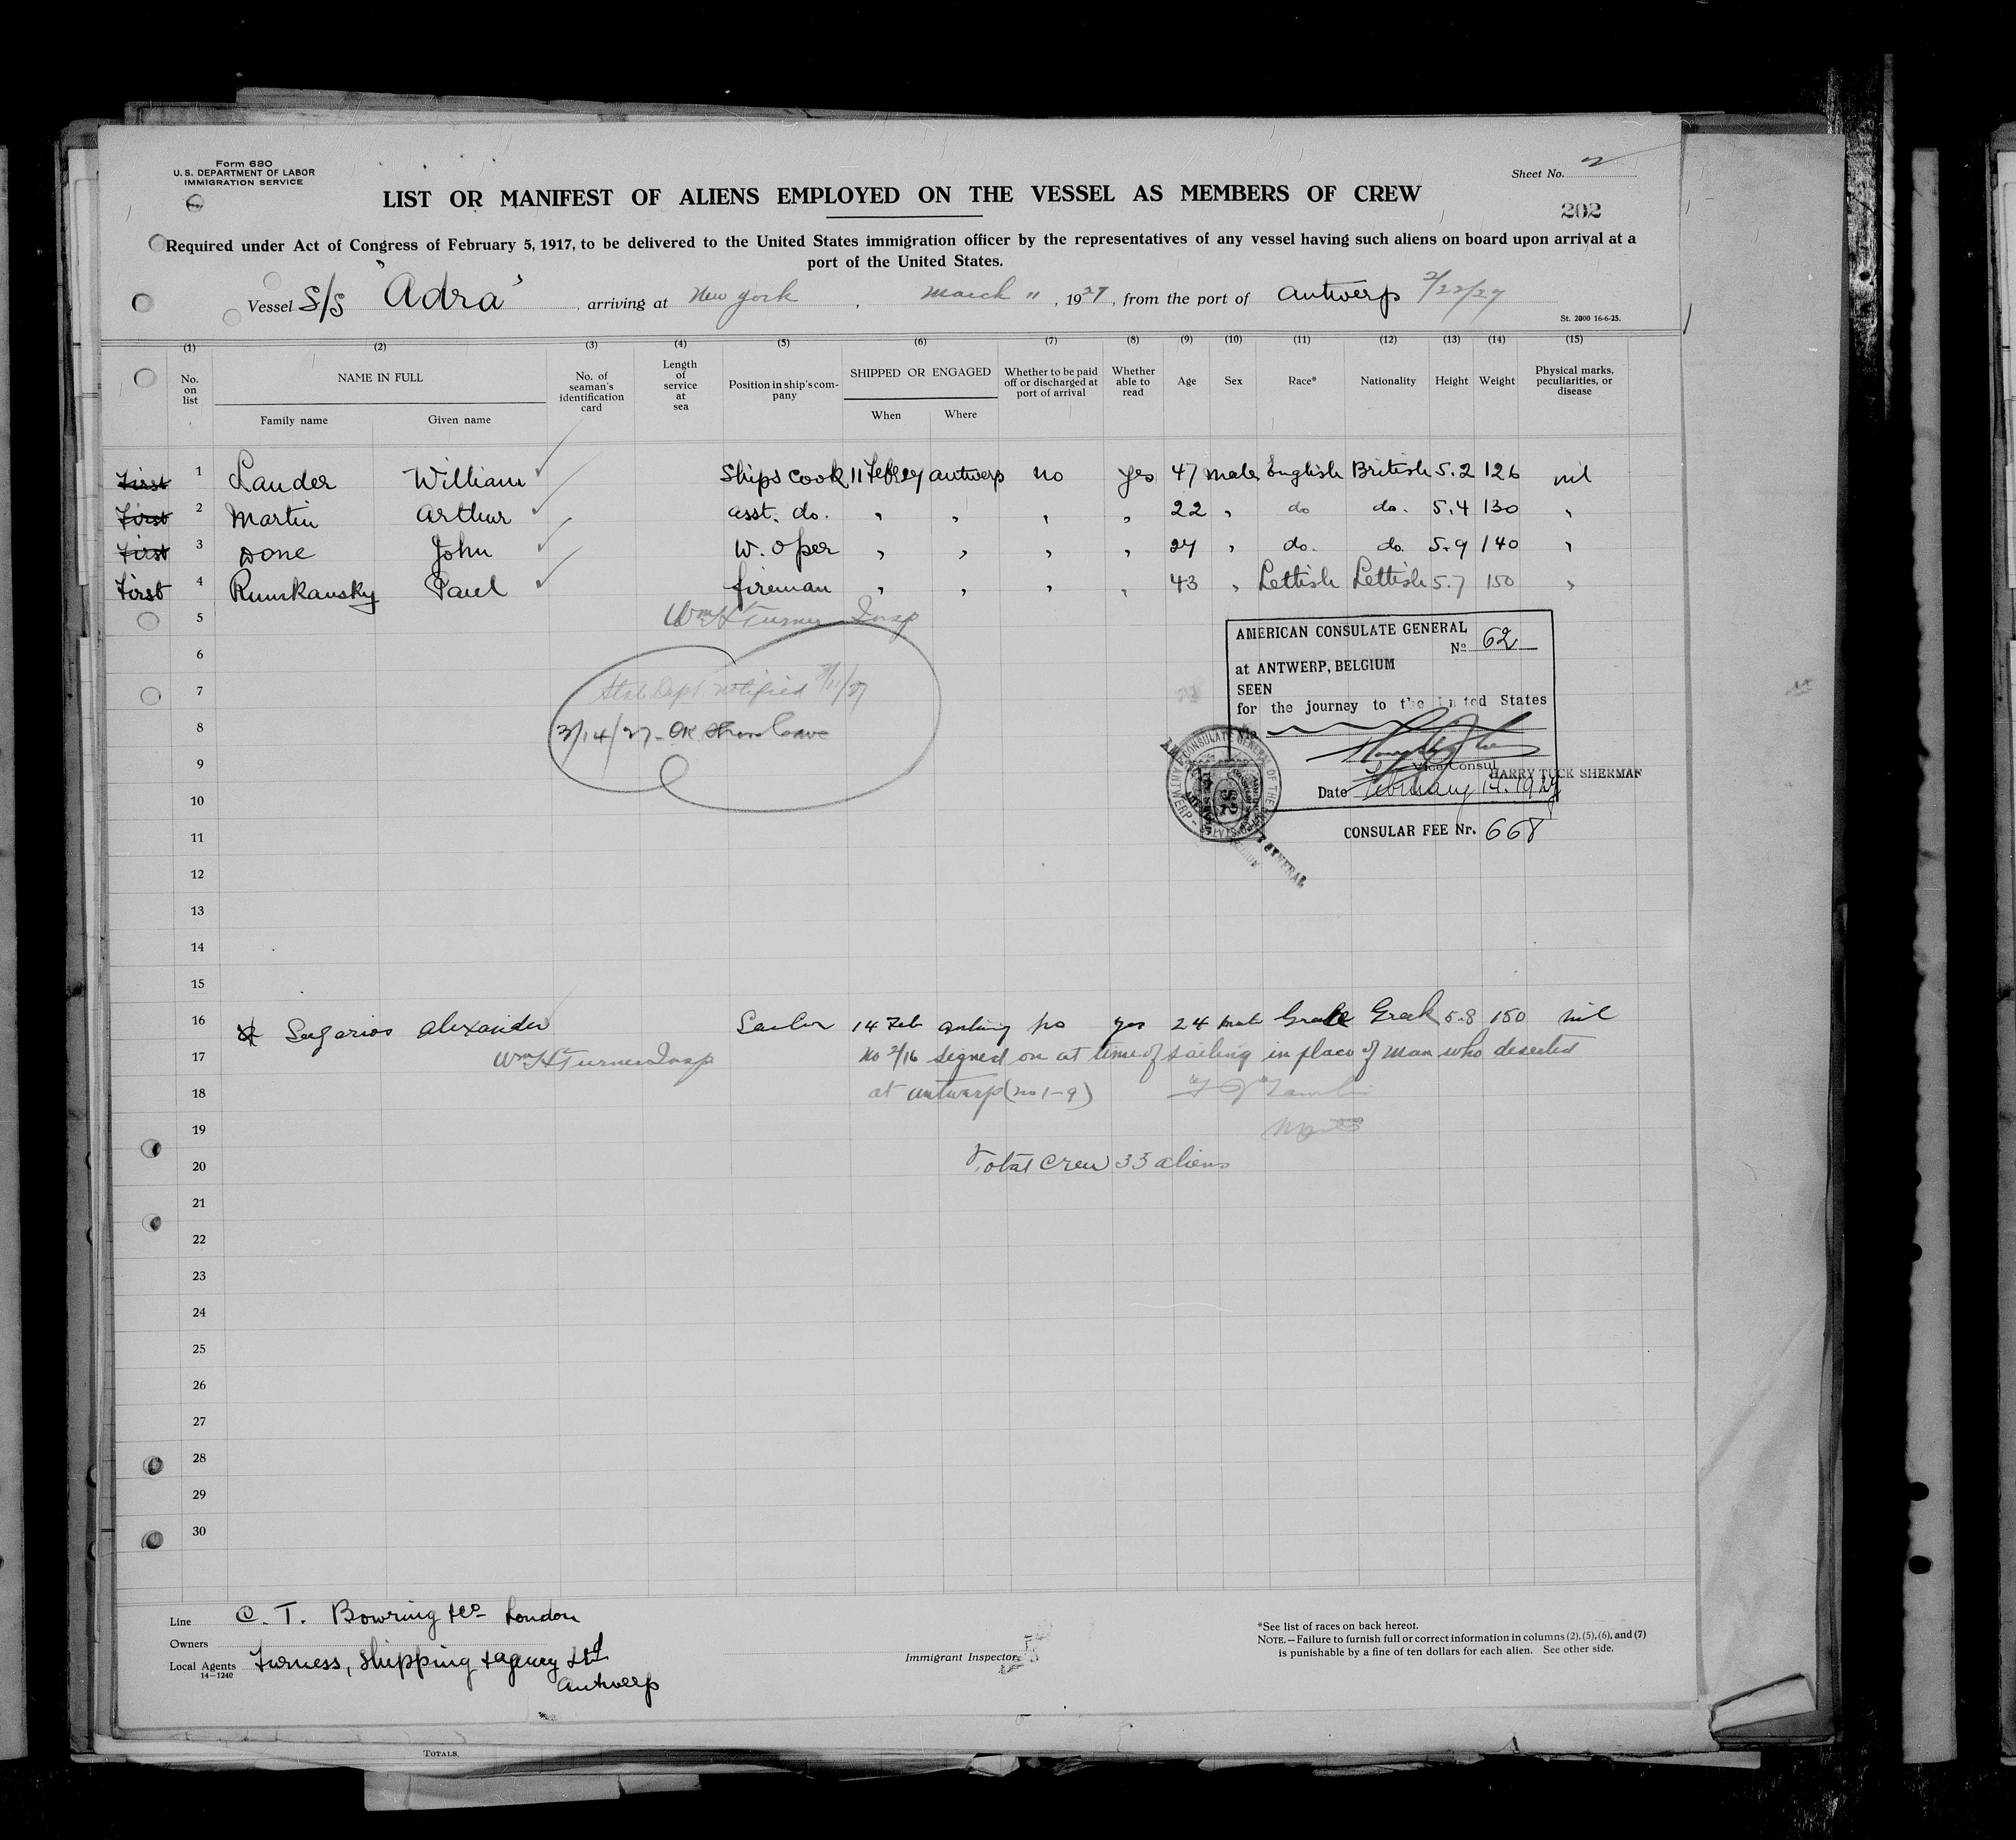 Form 680
U. S. DEPARTMENT OF LABOR
IMMIGRATION SERVICE
Sheet No. 2
LIST OR MANIFEST OF ALIENS EMPLOYED ON THE VESSEL AS MEMBERS OF CREW
202
Required under Act of Congress of February 5, 1917, to be delivered to the United States immigration officer by the representatives of any vessel having such aliens on board upon arrival at a
port of the United States.
Vessel S/S "Adra", arriving at New York, March 11, 1927, from the port of Antwerp 2/22/27
St. 2000 16-6-25.
(1) (2) (3) (4) (5) (6) (7) (8) (9) (10) (11) (12) (13) (14) (15)
No. on list NAME IN FULL No. of seaman's identification card Length of service at sea Position in ship's company SHIPPED OR ENGAGED Whether to be paid off or discharged at port of arrival Whether able to read Age Sex Race* Nationality Height Weight Physical marks, peculiarities, or disease
Family name Given name When Where
First 1 Lander William Ships cook 11 Feb 27 Antwerp no yes 47 male English British 5.2 126 nil
First 2 Martin Arthur asst. do. " " " " 22 " do do. 5.4 130 "
First 3 Done John W. Oper " " " " 27 " do. do. 5.9 140 "
First 4 Rumkansky Paul fireman " " " " 43 " Lettish Lettish 5.7 150 "
5 Wm H Turner Insp
6
7 State Dept. notified 3/11/27
8 3/14/27 - OK Shore leave
9
10
11
AMERICAN CONSULATE GENERAL
No 62
at ANTWERP, BELGIUM
SEEN
for the journey to the United States
Via
Vice Consul
HARRY TUCK SHERMAN
Date February 14. 1927
CONSULAR FEE Nr. 668
12
13
14
15
16 Alexander Sailor 14 Feb no yes 24 male Greek Greek 5.8 150 nil
17 Wm H Turner Insp No 2/16 signed on at time of sailing in place of man who deserted
18 at Antwerp (no 1-9)
19
20 Total crew 33 aliens
21
22
23
24
25
26
27
28
29
30
Line C. T. Bowring & Co London
Owners
Local Agents Furness, Shipping & Agency Ltd
14-1240
Antwerp
Immigrant Inspector.
*See list of races on back hereof.
NOTE.—Failure to furnish full or correct information in columns (2), (5), (6), and (7)
is punishable by a fine of ten dollars for each alien. See other side.
TOTALS.